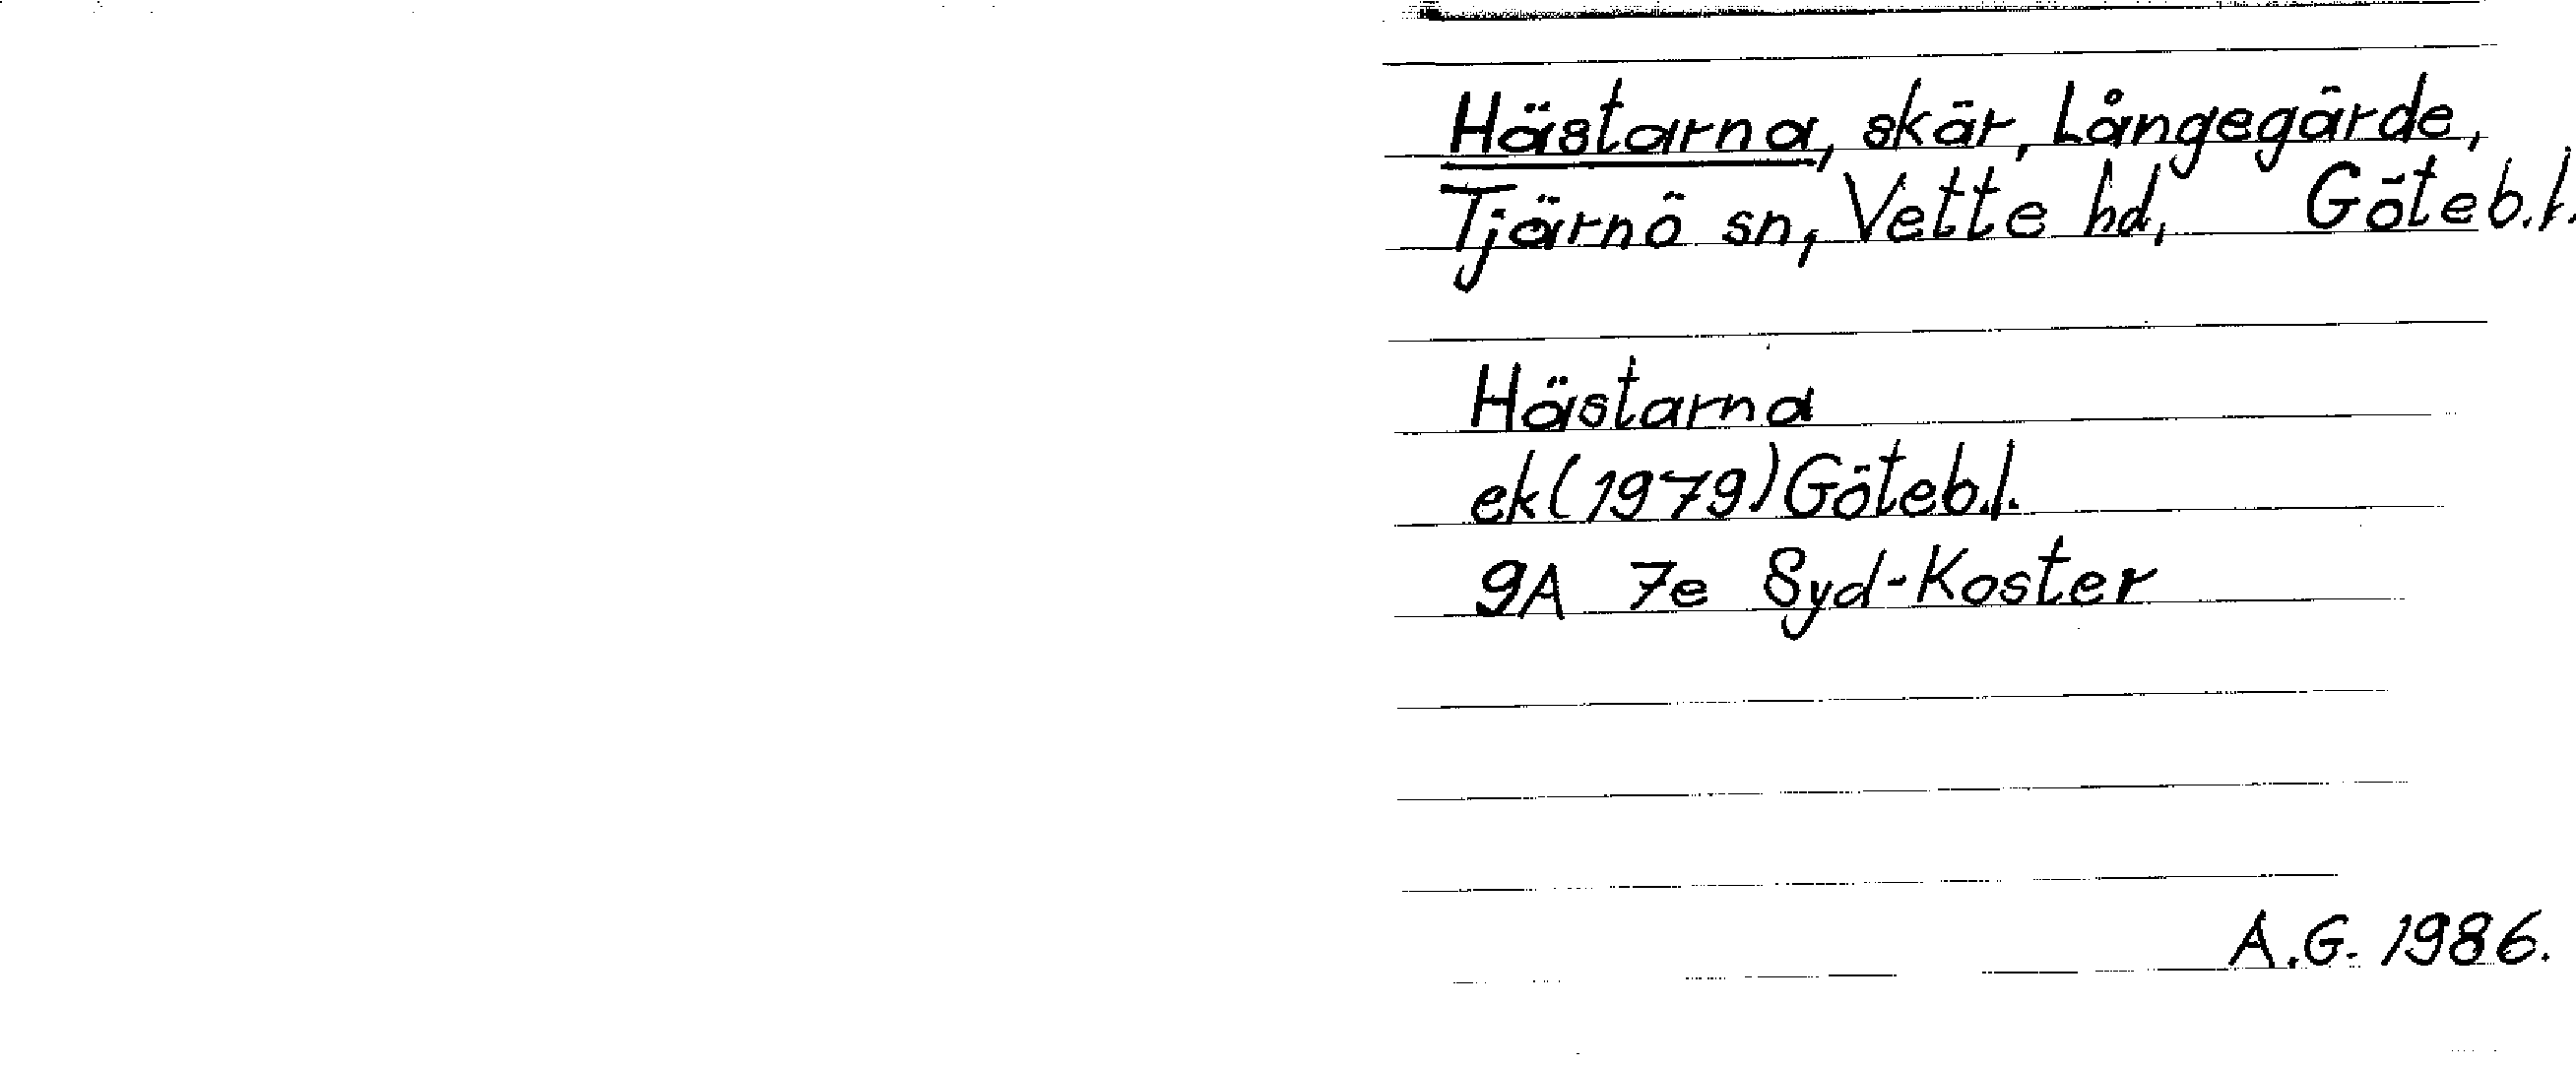 Hästarna, skär, Långegärde,
Tjärnö sn, Vette hd, Göteb.l.
Hästarna
ek (1979) Göteb.l.
9A 7e Syd-Koster
A.G. 1986.